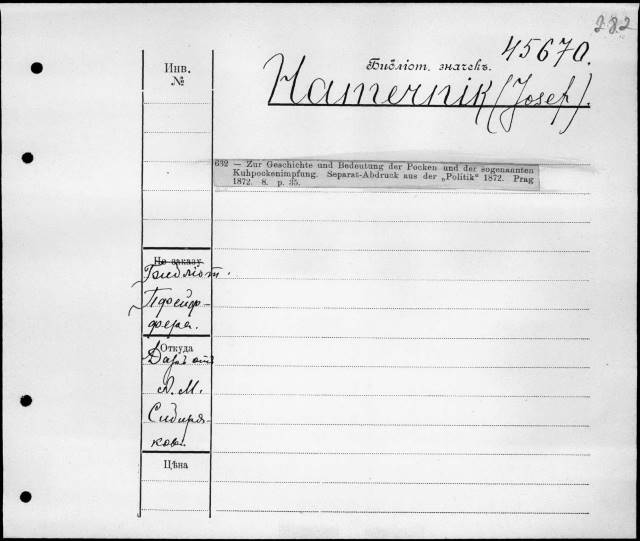 282
45670.
Инв.
№
Библіот. значекъ.
Hamernik (Josef).
632 — Zur Geschichte und Bedeutung der Pocken und der sogenannten
Kuhpockenimpfung. Separat-Abdruck aus der „Politik“ 1872. Prag
1872. 8. p. 35.
По заказу
Библіот.
Пфейф-
фера.
Откуда
Даръ отъ
А. М.
Сибиря-
кова.
Цѣна